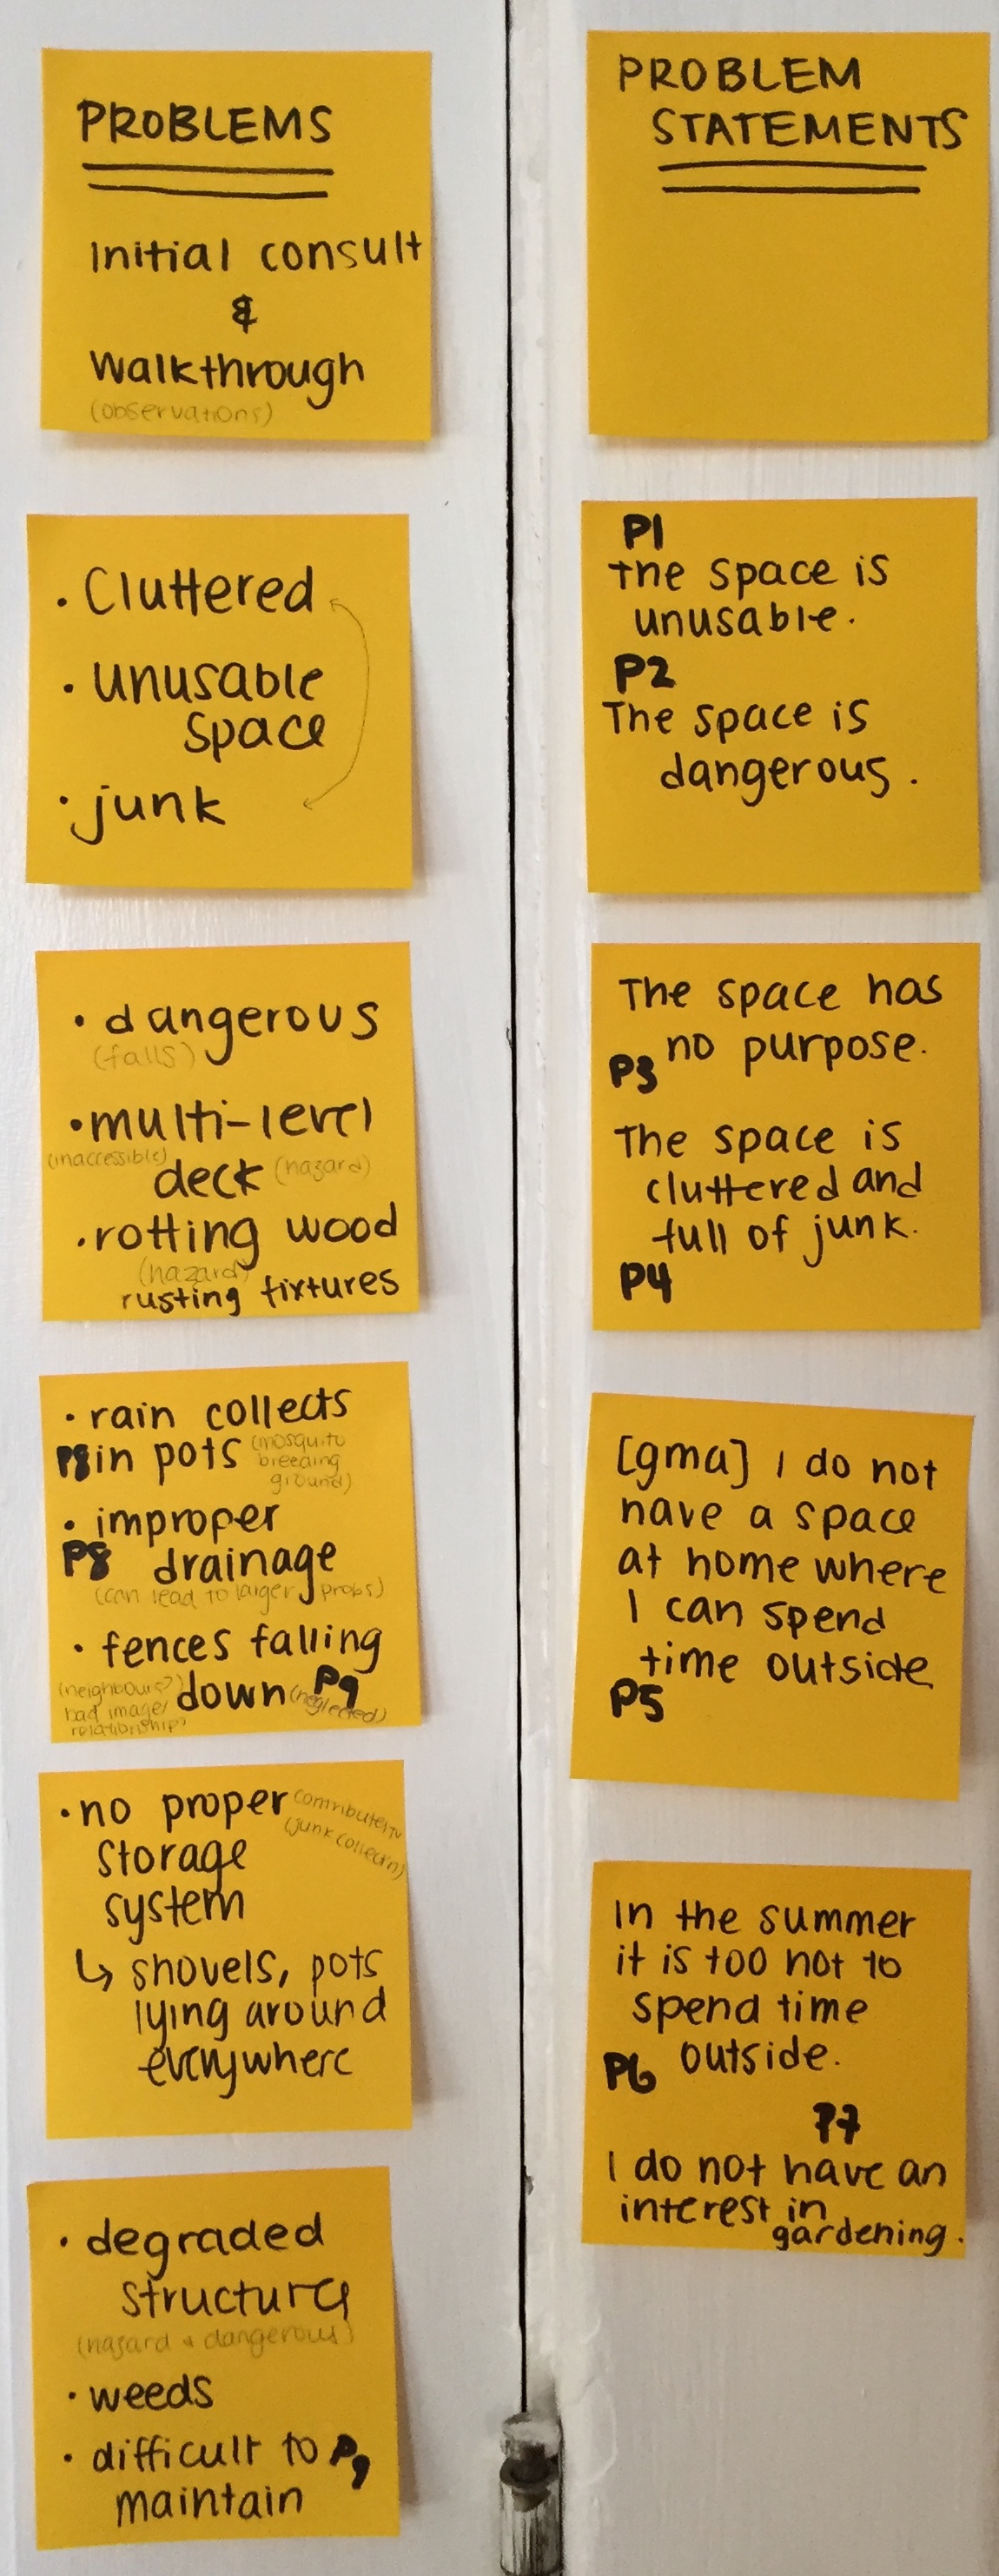 PROBLEMS
Initial consult
&
Walkthrough
(observations)
• Cluttered
• unusable
space
• junk
• dangerous
(falls)
• multi-level
(inaccessible) deck (hazard)
• rotting wood
(hazard)
rusting fixtures
• rain collects
P8 in pots (mosquito
breeding
ground)
• improper
P8 drainage
(can lead to larger props)
• fences falling
(neighbours? down (neglected) P9
bad image/
relationship?
• no proper contributes to
(junk collectn)
storage
system
↳ shovels, pots
lying around
everywhere
• degraded
structure
(hazard & dangerous)
• weeds
• difficult to P9
maintain
PROBLEM
STATEMENTS
P1
the space is
unusable.
P2
The space is
dangerous.
The space has
P3 no purpose.
The space is
cluttered and
full of junk.
P4
[gma] I do not
have a space
at home where
I can spend
time outside
P5
In the summer
it is too hot to
spend time
P6 outside.
P7
I do not have an
interest in
gardening.